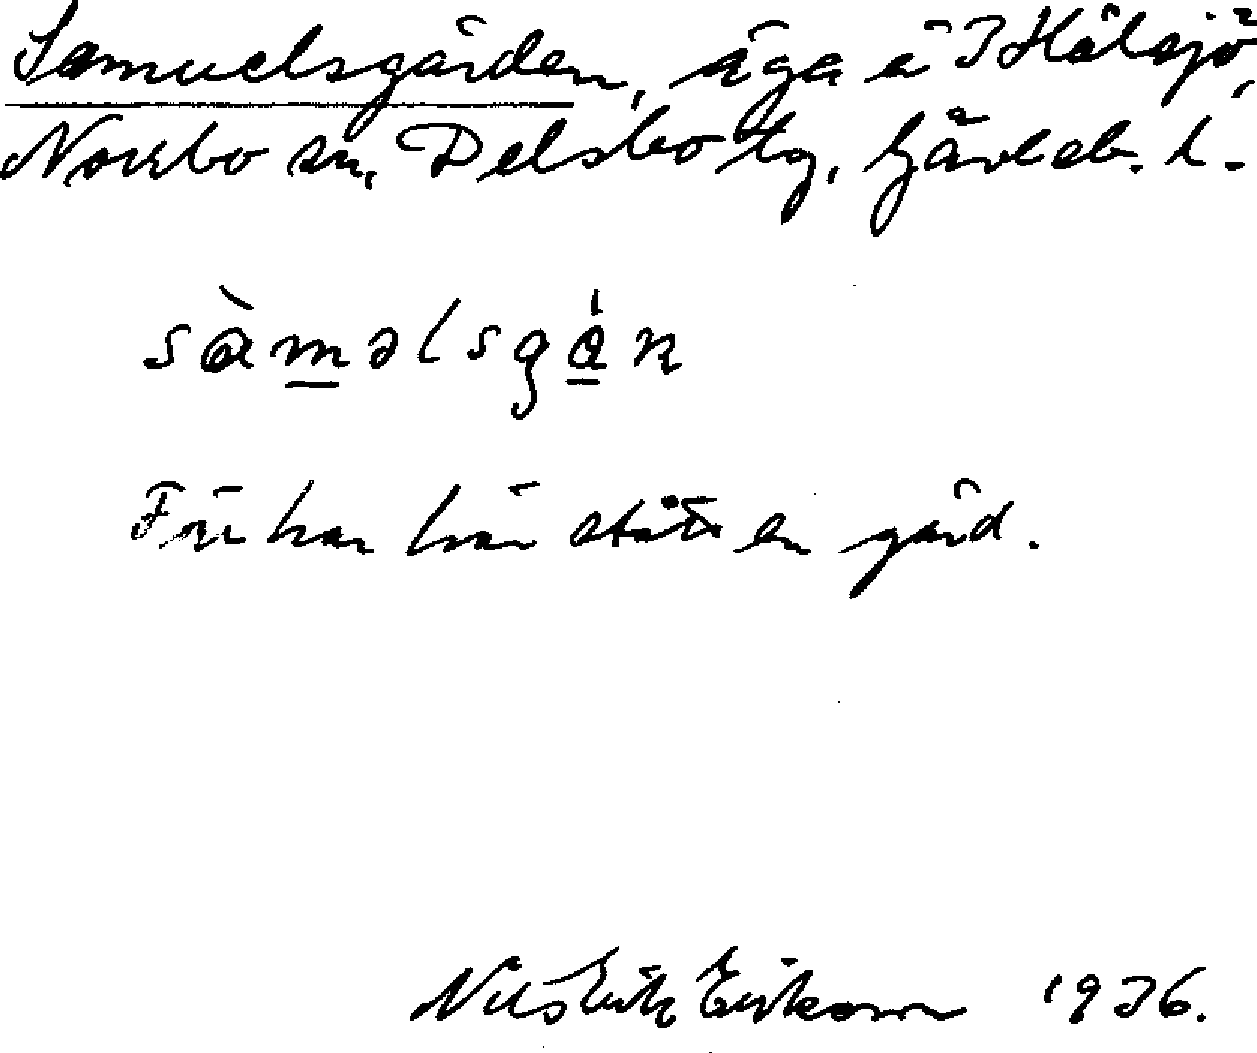 Samuelsgården, äga å 3 Hålsjö,
Norrbo sn, Delsbo tg, Gävleb. l.
sàməlsgɑ̍n
Förr har här stått en gård.
Nils Erik Eriksson 1936.